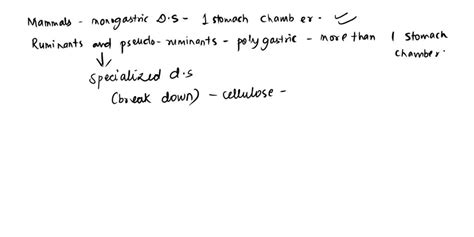 Mammals - monogastric D.S - 1 stomach chamber. ✓
Ruminants and pseudo-ruminants - polygastric - more than 1 stomach
chamber.
↓
Specialized d.s
(break down) - cellulose -